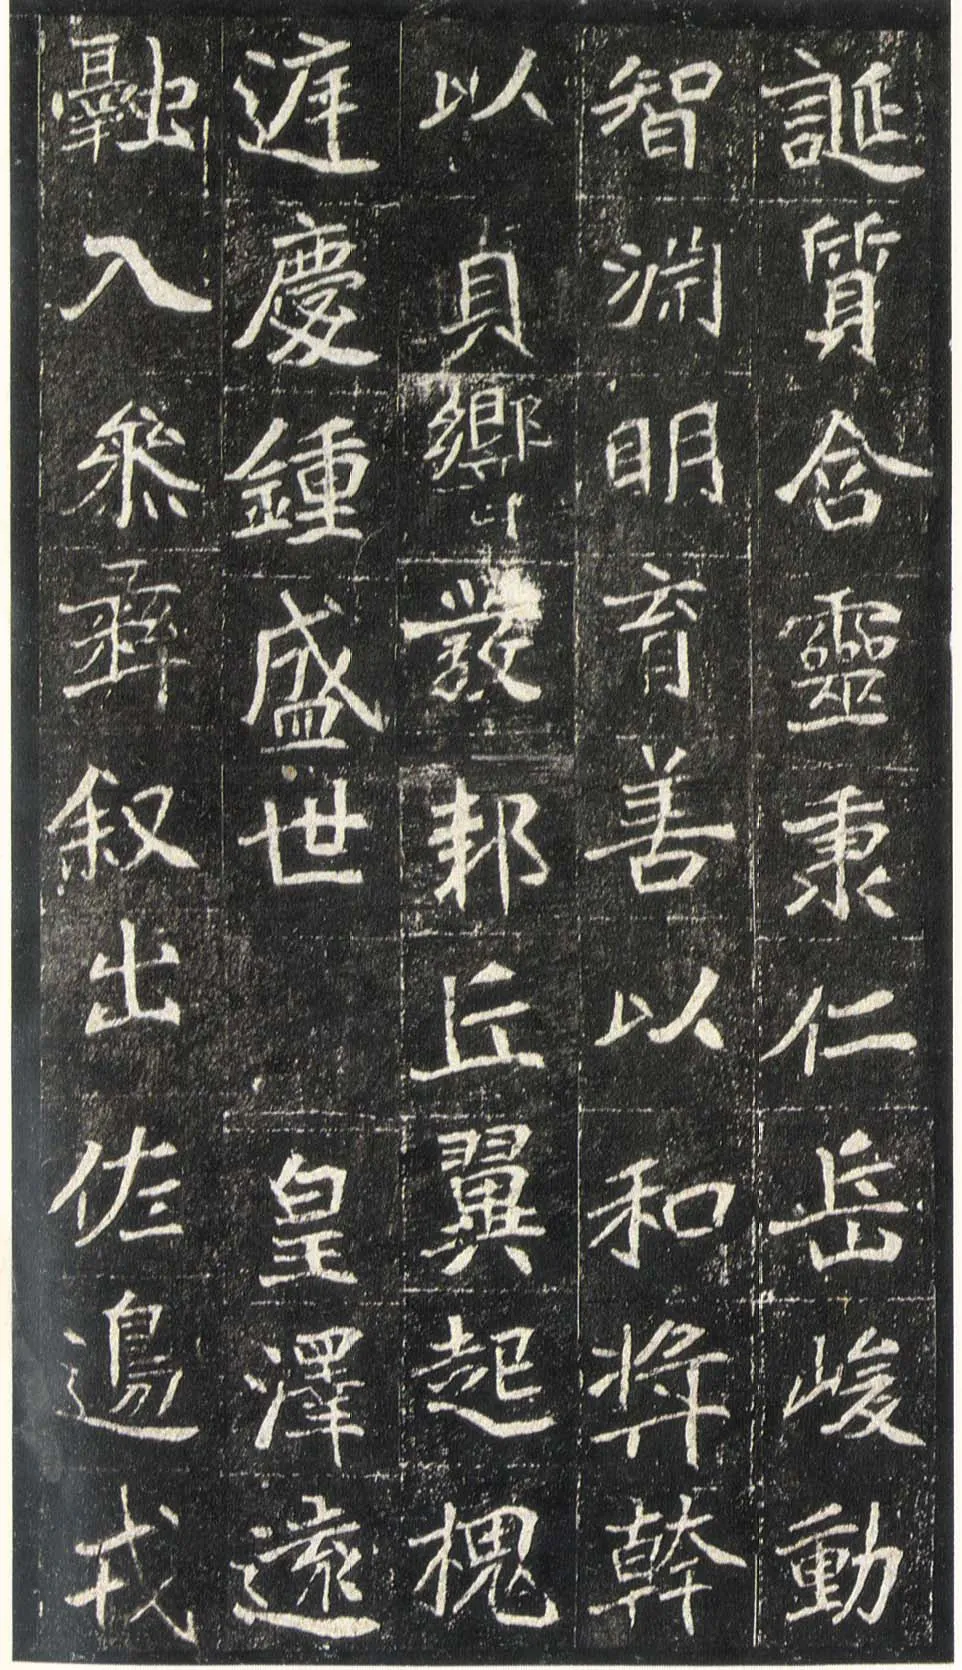 誕質含靈秉仁岳峻動
智淵明育善以和奬幹
以貞響發邦丘翼起槐
庭慶鍾盛世皇澤遠
融入叅彝叙出佐邊戎